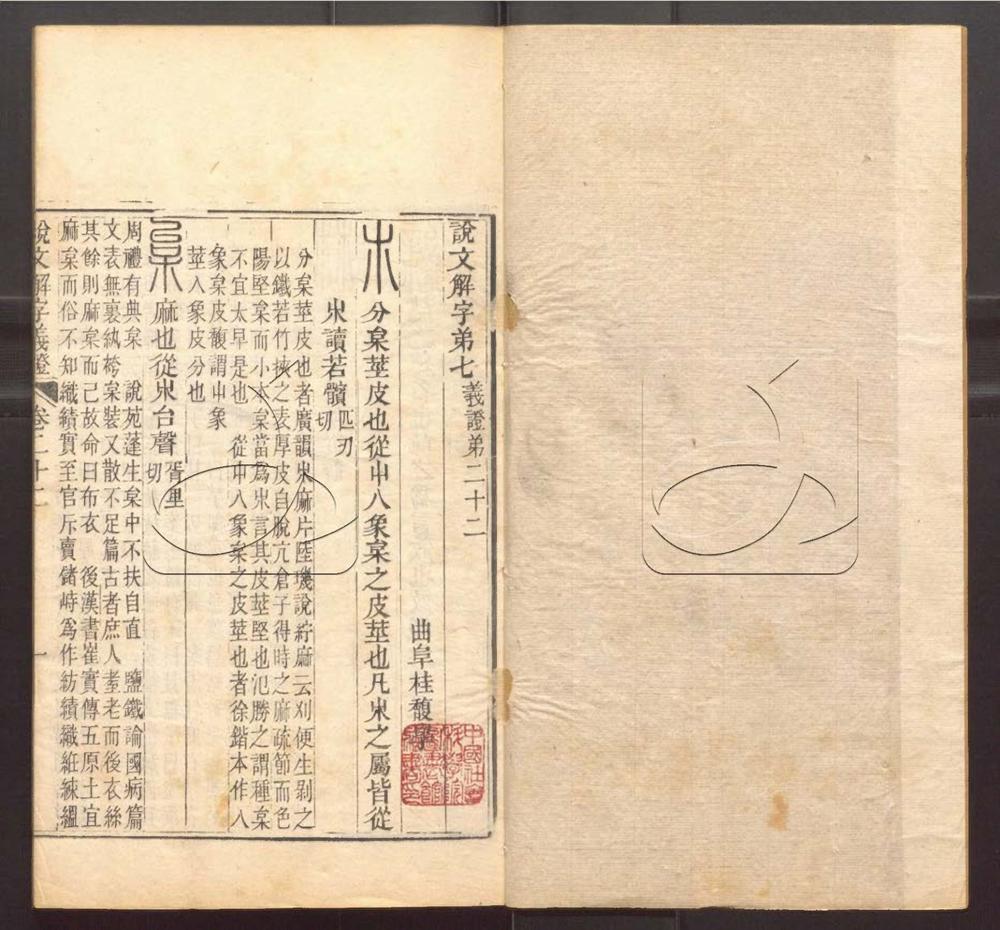 說文解字弟七 義證弟二十二
曲阜桂馥學
𣎳 分枲莖皮也從屮八象枲之皮莖也凡𣎳之屬皆從
𣎳讀若髕 匹刃切
分枲莖皮也者廣韻𣎳麻片陸璣說紵麻云刈便生剥之
以鐵若竹挾之表厚皮自脫亢倉子得時之麻疏節而色
陽堅枲而小本枲當爲𣎳言其皮莖堅也氾勝之謂種枲
不宜太早是也 從屮八象枲之皮莖也者徐鍇本作八
象枲皮馥謂屮象
莖八象皮分也
枲 麻也從𣎳台聲 胥里切
周禮有典枲 說苑蓬生枲中不扶自直 鹽鐵論國病篇
文表無裏紈袴枲裝又散不足篇古者庶人耊老而後衣絲
其餘則麻枲而已故命曰布衣 後漢書崔寔傳五原土宜
麻枲而俗不知織績實至官斥賣儲峙爲作紡績織絍練縕
說文解字義證 卷二十二 一
中國社會科學院